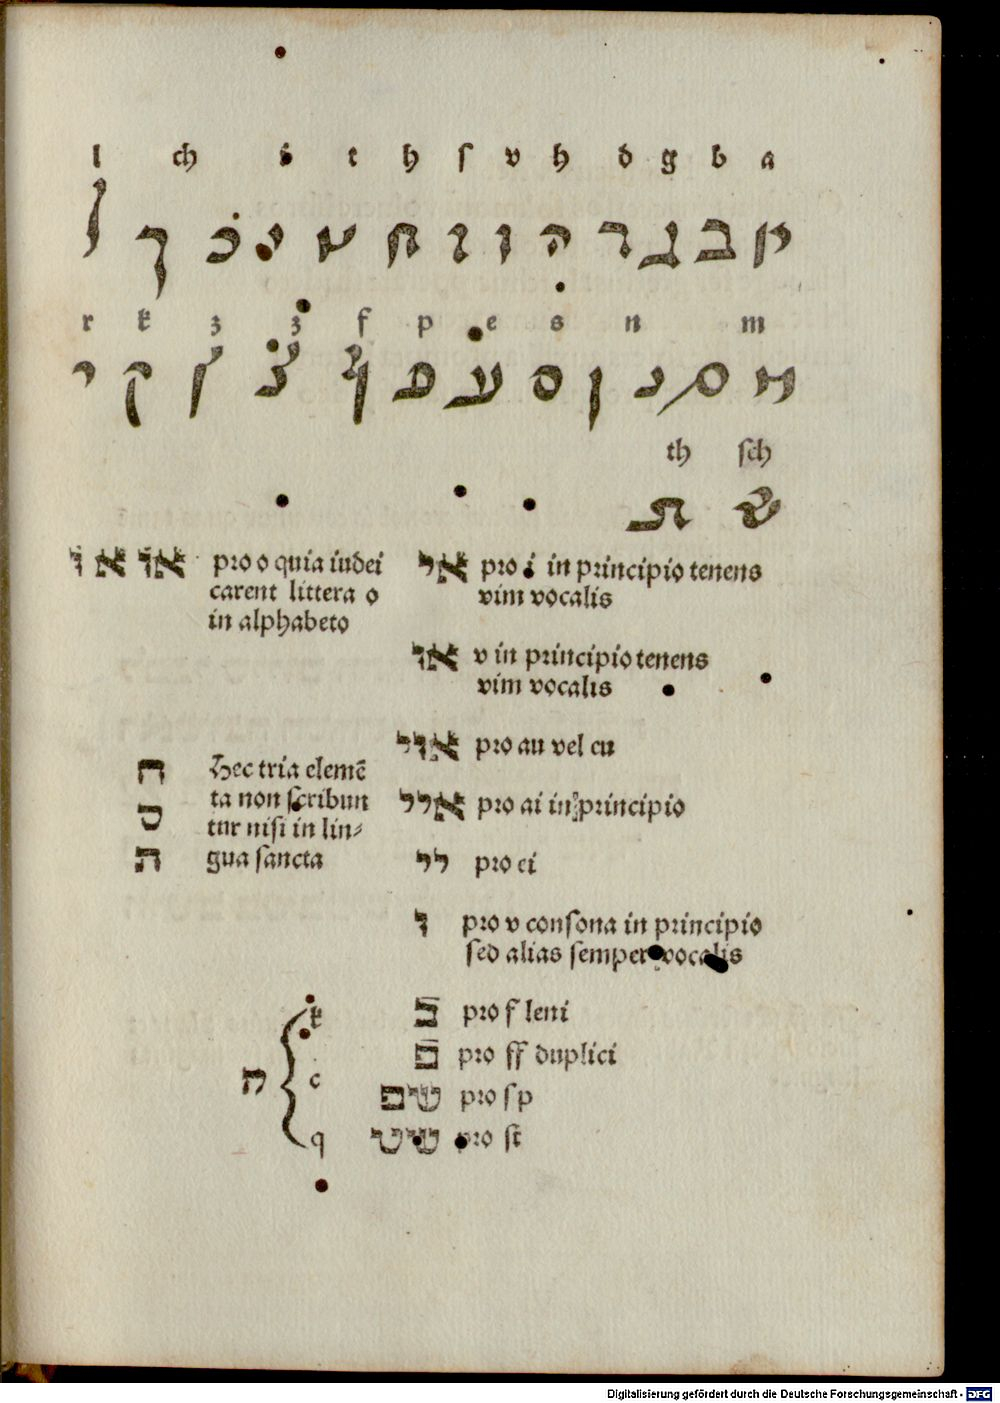 l ch i t h ſ v h d g b a
א ב ג ד ה ו ז ח ט י כ ך ל
r k z z f p e s n m
מ ם נ ן ס ע פ ף צ ץ ק ר
th ſch
ש ת
או א ו pro o quia iudei
carent littera o
in alphabeto
אי pro i in principio tenens
vim vocalis
או v in principio tenens
vim vocalis
אוי pro au vel eu
איי pro ai in principio
יי pro ei
ו pro v conſona in principio
ſed alias ſemper vocalis
ח Hec tria elemē
ta non ſcribun
ס
tur niſi in lin⸗
ת gua ſancta
בֿ pro f leni
פֿ pro ff duplici
שפ pro ſp
שט pro ſt
ק k
c
q
Digitalisierung gefördert durch die Deutsche Forschungsgemeinschaft - DFG